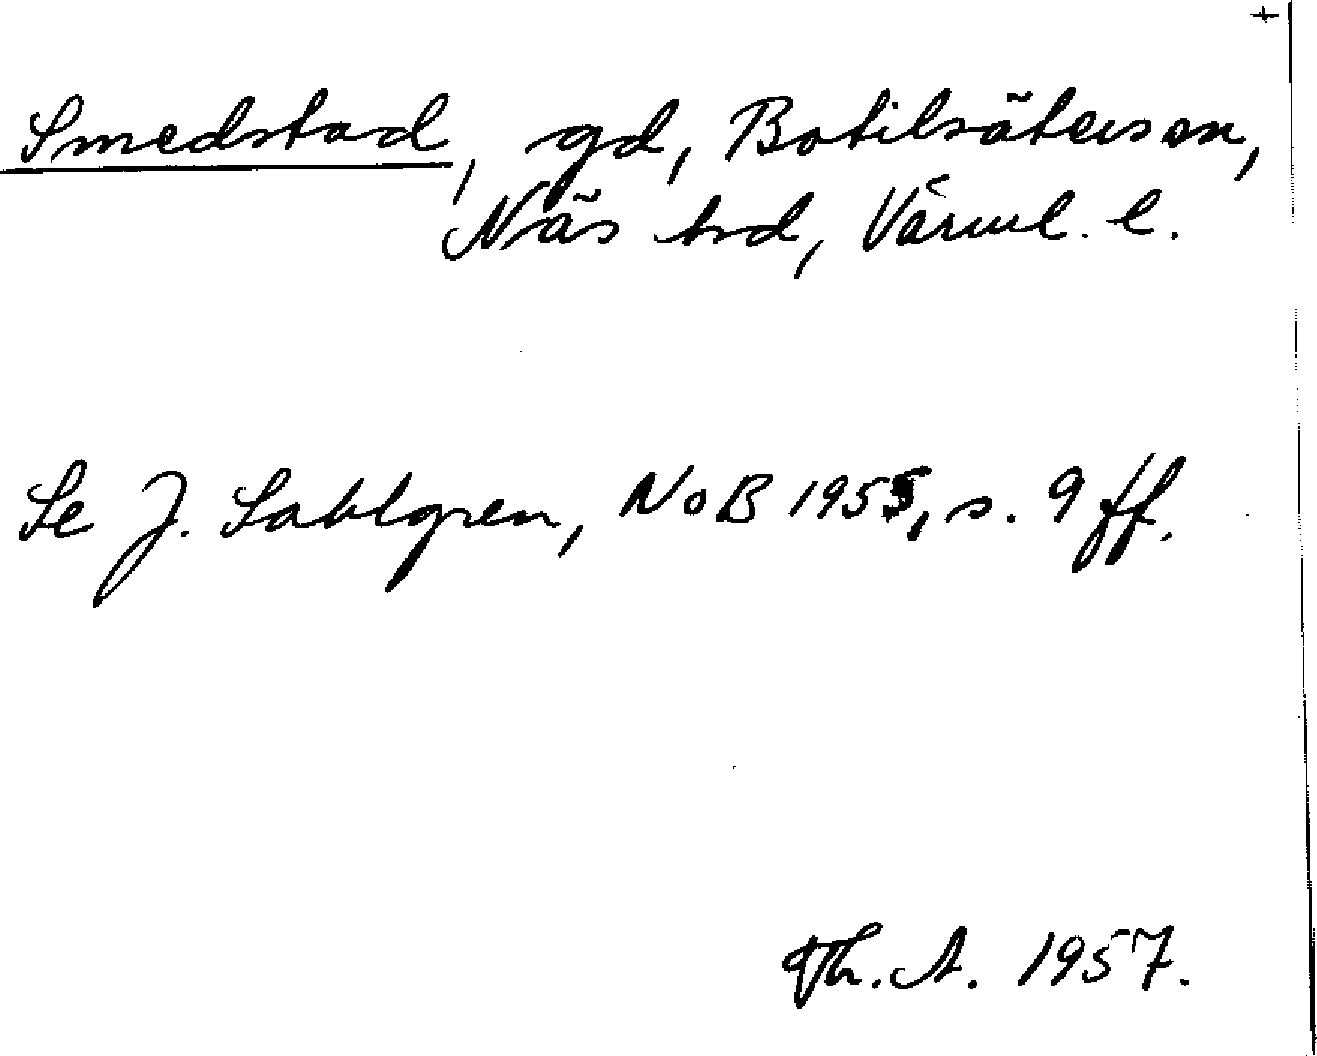 +
Smedstad, gd, Botilsäters sn,
Näs hd, Värml. l.
Se J. Sahlgren, NoB 1955, s. 9 ff.
Th. A. 1957.